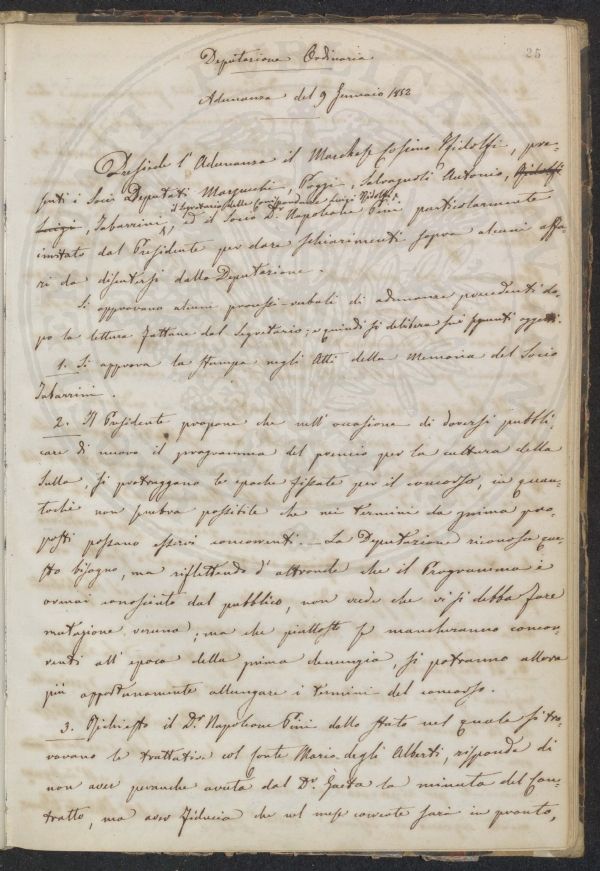 25
Deputazione Ordinaria
Adunanza del 9 Gennaio 1852
Presiede l'Adunanza il March. Cosimo Ridolfi, pre-
senti i Socii Deputati Marzucchi, Poggi, Salvagnoli Antonio, Ridolfi
il Segretario delle Corrispondenze Luigi Ridolfi
Luigi, Tabarrini, ed il Socio D. Napoleone Pini particolarmente
invitato dal Presidente per dare schiarimenti sopra alcuni affa-
ri da discutersi dalla Deputazione.
Si approvano alcuni processi-verbali di adunanze precedenti do-
po la lettura fattane dal Segretario; e quindi si delibera sui seguenti oggetti.
1. Si approva la stampa negli Atti della Memoria del Socio
Tabarrini.
2. Il Presidente propone che nell'occasione di doversi pubbli-
care di nuovo il programma del premio per la cultura della
Sulla, si protraggano le epoche fissate per il concorso, in quan-
tochè non sembra possibile che nei termini da prima pro-
posti possano esservi concorrenti. — La Deputazione riconosce que-
sto bisogno, ma riflettendo d'altronde che il Programma è
ormai conosciuto dal pubblico, non vede che vi si debba fare
mutazione veruna; ma che piuttosto se mancheranno concor-
renti all'epoca della prima denunzia, si potranno allora
più opportunamente allungare i termini del concorso.
3. Richiesto il D.r Napoleone Pini dello stato nel quale si tro-
vavano le trattative col Conte Mario degli Alberti, risponde di
non aver peranche avuta dal D.r Gaeta la minuta del Con-
tratto, ma aver fiducia che nel mese corrente sarà in pronto,